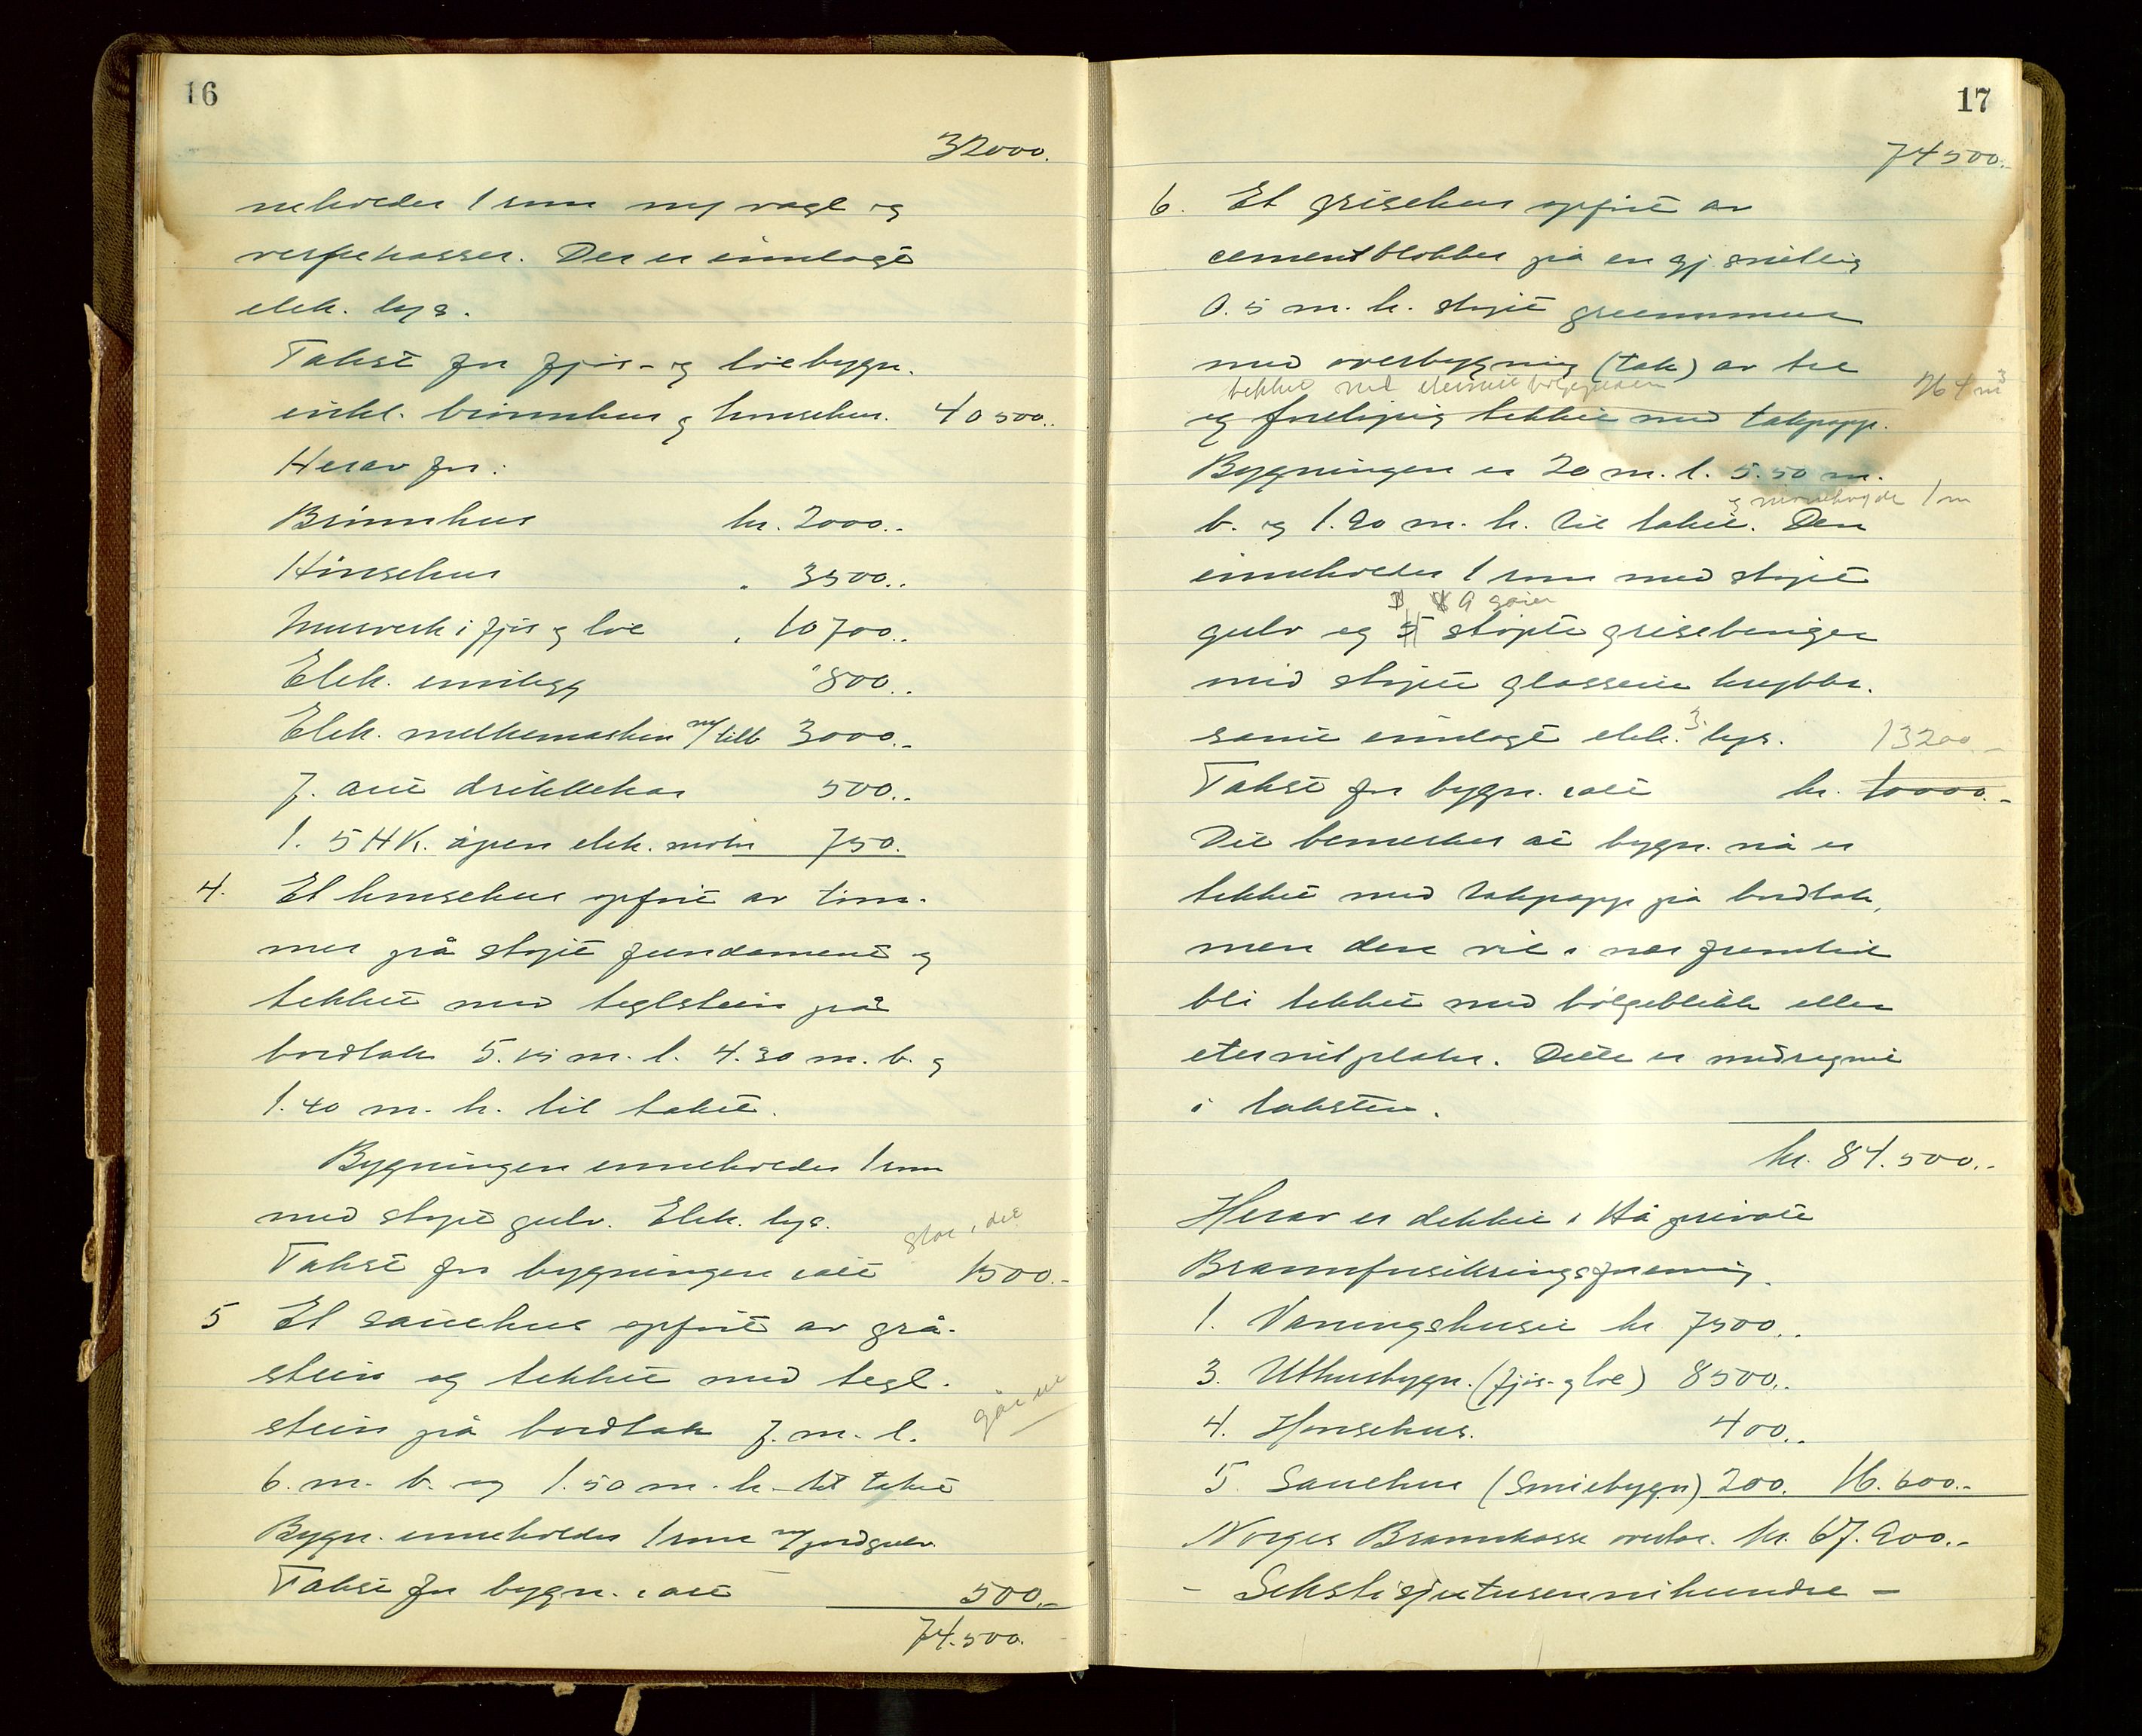 16
32000.
neholder 1 rom m/ vagl og
verpekasser. Der er innlagt
elek. lys.
Takst for fjøs- og løebygn.
inkl. brønnhus og hønsehus. 40500.-
Herav for:
Brønnhus kr. 2000.-
Hønsehus " 3500.-
Murverk i fjøs og løe " 10700.-
Elek. innlegg " 800.-
Elek. melkemaskin m/ tilb 3000.-
7. aut drikkekar 500.-
1. 5 HK. åpen elek. motor 750.
4. Et hønsehus opført av tøm-
mer på støpt fundament og
tekket med teglstein på
bordtak 5.15 m. l. 4.30 m. b. og
1.40 m. h. til taket.
Bygningen inneholder 1 rom
med støpt gulv. Elek. lys.
Takst for bygningen i alt 1500.-
5 Et sauehus opført av grå-
stein og tekket med tegl-
stein på bordtak 7. m. l.
går ut
6. m. b. og 1.50 m. h. til taket
Bygn. inneholder 1 rom m/ jordgulv.
Takst for bygn. i alt 500.-
74.500.
17
74500.-
6. Et grisehus opført av
cementblokker på en gj.snittlig
0.5 m. h. støpt grunnmur
med overbygning (tak) av tre
tekket med eternitt bølgeplater 264 m³
og foreløpig tekket med takpapp.
Bygningen er 20 m. l. 5.50 m.
og mønehøyde 1 m
b. og 1.90 m. h. til taket. Den
inneholder 1 rom med støpt
9
gulv og 5 støpte grisebinger
med støpte glasserte krybber.
samt innlagt elek. lys. 13200.-
Takst for bygn. i alt kr. 10000.-
Det bemerkes at bygn. nå er
tekket med takpapp på bordtak,
men den vil i nær fremtid
bli tekket med bølgeblikk eller
eternitplater. Dette er medregnet
i taksten.
kr. 84.500.-
Herav er dekket i Hå private
Brannforsikringsforening.
1. Våningshuset kr 7500.-
3. Uthusbygn. (fjøs- og løe) 8500.-
4. Hønsehus. 400.-
5 Sauehus (Smiebygn) 200. 16.600.-
Norges Brannkasse overtar. kr. 67.900.-
- Sekstisjutusennihundre -